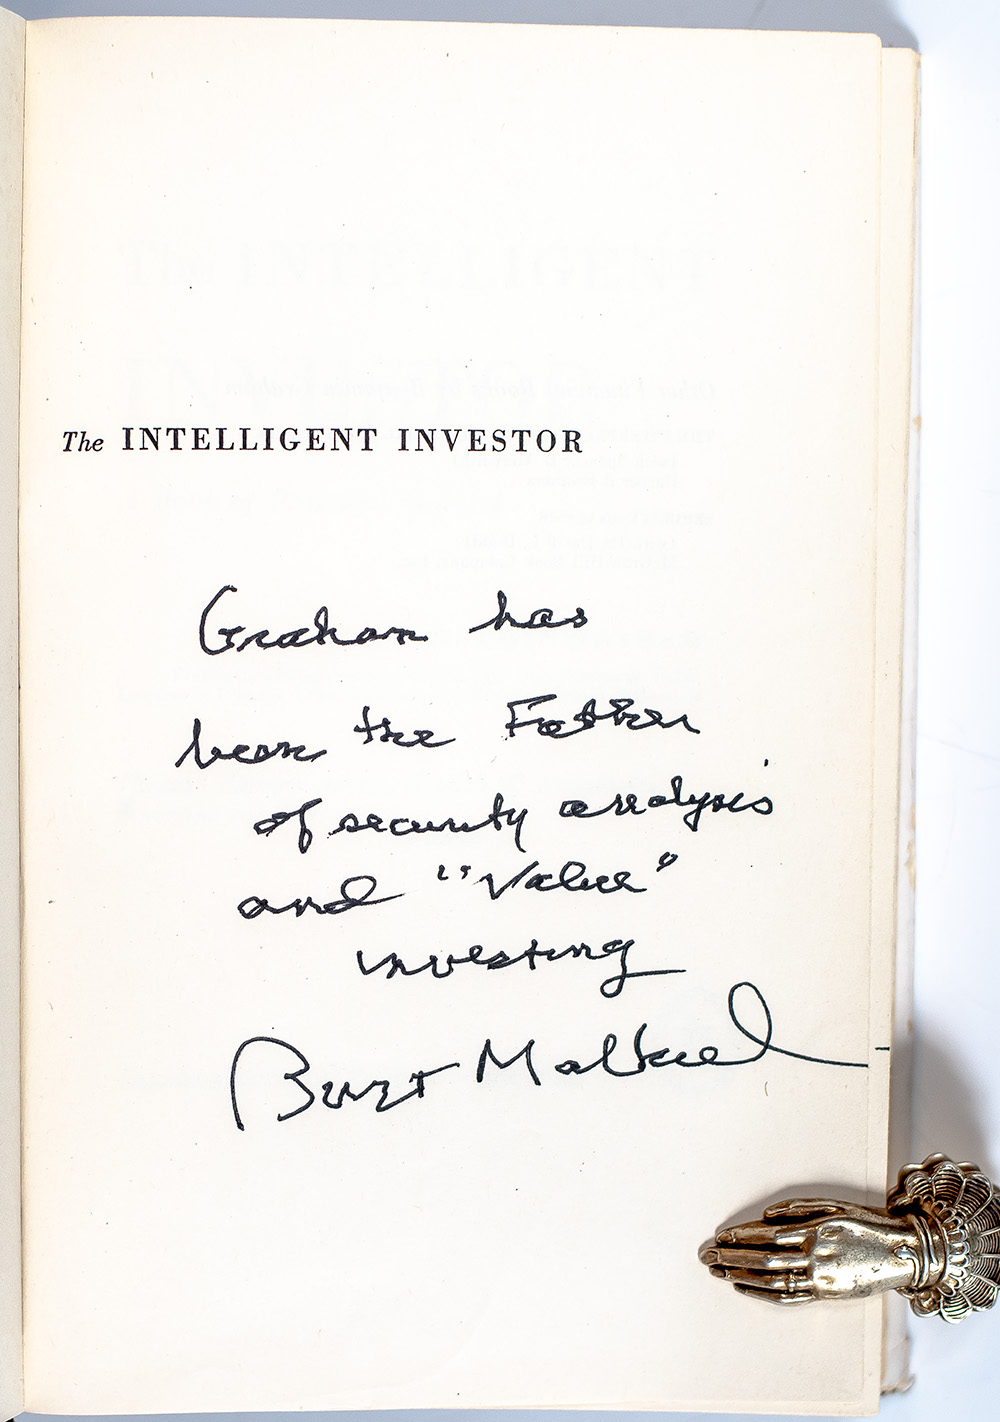 The INTELLIGENT INVESTOR
Graham has
been the Father
of security analysis
and "Value"
investing
Burt Malkiel